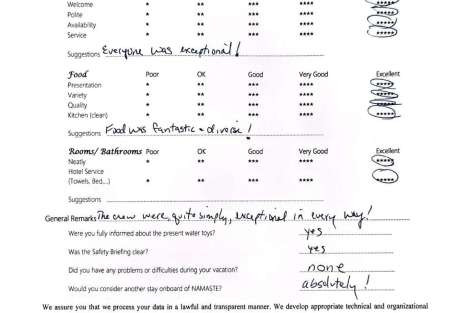 Welcome * ** **** **** *****
Polite * ** **** **** *****
Availability * ** **** **** *****
Service * ** **** **** *****
Suggestions Everyone was exceptional!
Food Poor OK Good Very Good Excellent
Presentation * ** *** **** *****
Variety * ** *** **** *****
Quality * ** *** **** *****
Kitchen (clean) * ** *** **** *****
Suggestions Food was fantastic + diverse!
Rooms/ Bathrooms Poor OK Good Very Good Excellent
Neatly * ** *** **** *****
Hotel Service
(Towels, Bed....) * ** *** **** *****
Suggestions
General Remarks The crew were, quite simply, exceptional in every way!
Were you fully informed about the present water toys? yes
Was the Safety Briefing clear? yes
Did you have any problems or difficulties during your vacation? none
Would you consider another stay onboard of NAMASTE? absolutely!
We assure you that we process your data in a lawful and transparent manner. We develop appropriate technical and organizational